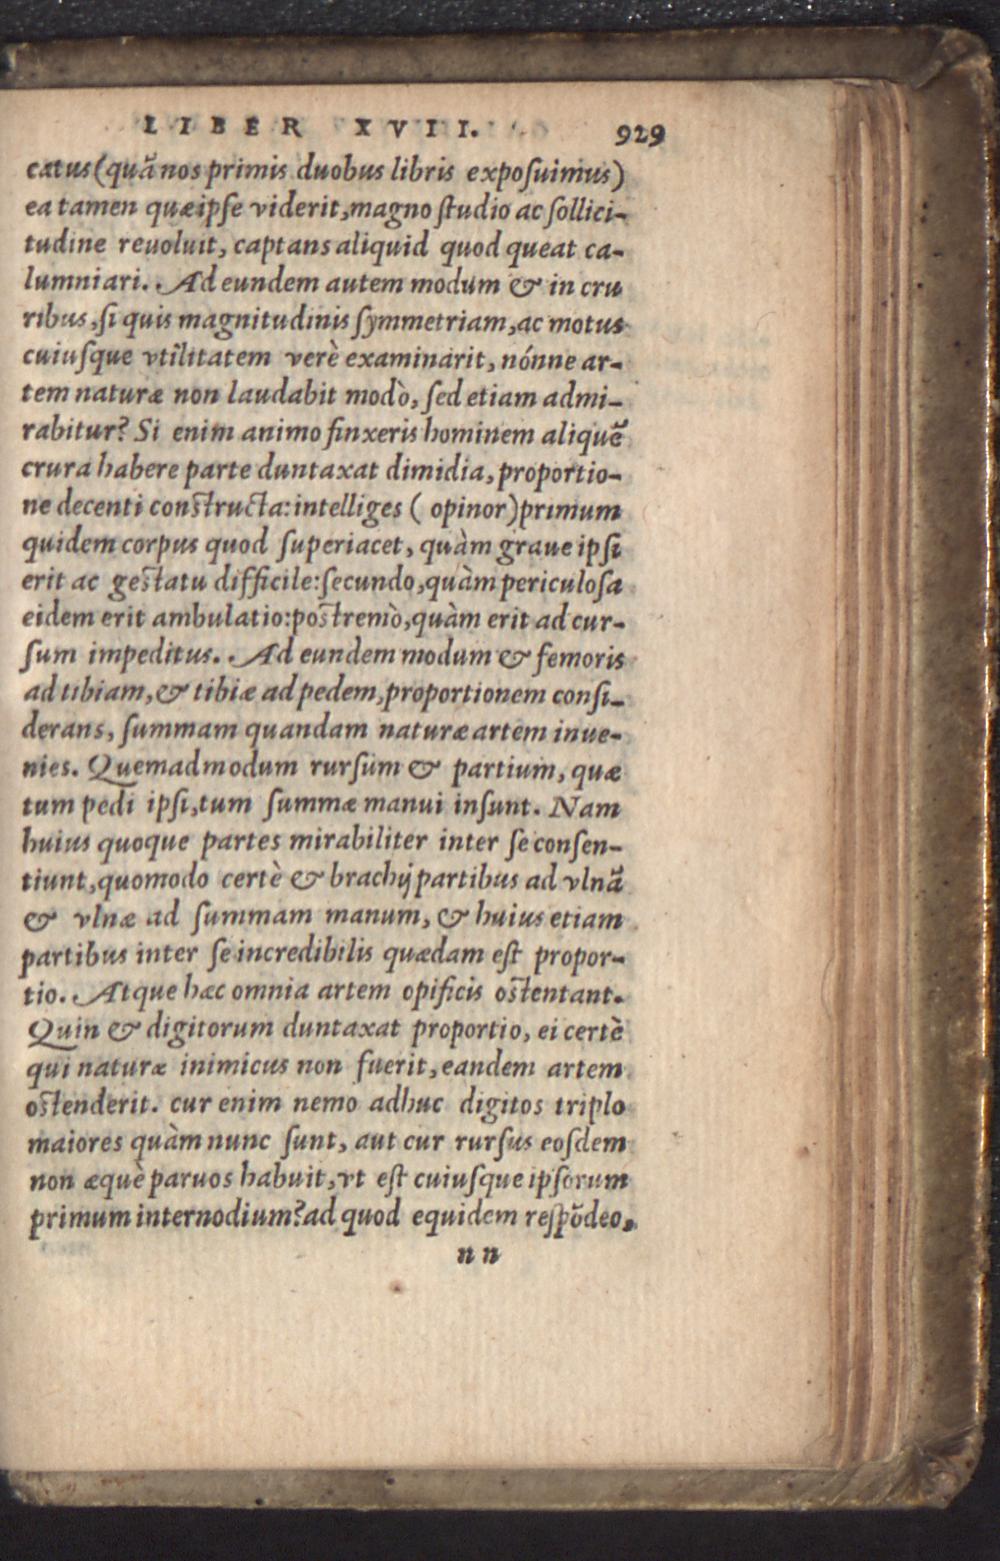 LIBER XVII. 929
catus (quã nos primis duobus libris exposuimus)
ea tamen quæ ipse viderit, magno studio ac sollici-
tudine reuoluit, captans aliquid quod queat ca-
lumniari. Ad eundem autem modum & in cru
ribus, si quis magnitudinis symmetriam, ac motus
cuiusque vtilitatem verè examinarit, nónne ar-
tem naturæ non laudabit modò, sed etiam admi-
rabitur? Si enim animo finxeris hominem aliquẽ
crura habere parte duntaxat dimidia, proportio-
ne decenti constructa: intelliges ( opinor) primum
quidem corpus quod superiacet, quàm graue ipsi
erit ac gestatu difficile: secundo, quàm periculosa
eidem erit ambulatio: postremò, quàm erit ad cur-
sum impeditus. Ad eundem modum & femoris
ad tibiam, & tibiæ ad pedem, proportionem consi-
derans, summam quandam naturæ artem inue-
nies. Quemadmodum rursum & partium, quæ
tum pedi ipsi, tum summæ manui insunt. Nam
huius quoque partes mirabiliter inter se consen-
tiunt, quomodo certè & brachij partibus ad vlnã
& vlnæ ad summam manum, & huius etiam
partibus inter se incredibilis quædam est propor-
tio. Atque hæc omnia artem opificis ostentant.
Quin & digitorum duntaxat proportio, ei certè
qui naturæ inimicus non fuerit, eandem artem
ostenderit. cur enim nemo adhuc digitos triplo
maiores quàm nunc sunt, aut cur rursus eosdem
non æquè paruos habuit, vt est cuiusque ipsorum
primum internodium? ad quod equidem respõdeo,
nn